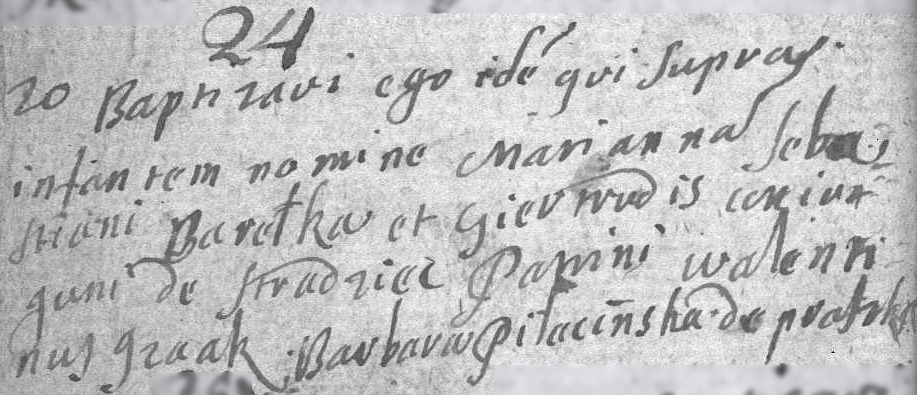 24
20 Baptizavi ego idē qui supra
infantem nomine Mariannā Seba
stiani Baretka et Giertrudis coniu
gum de Stradziec Patrini walenti
nus Graak Barbara Pilacinska de